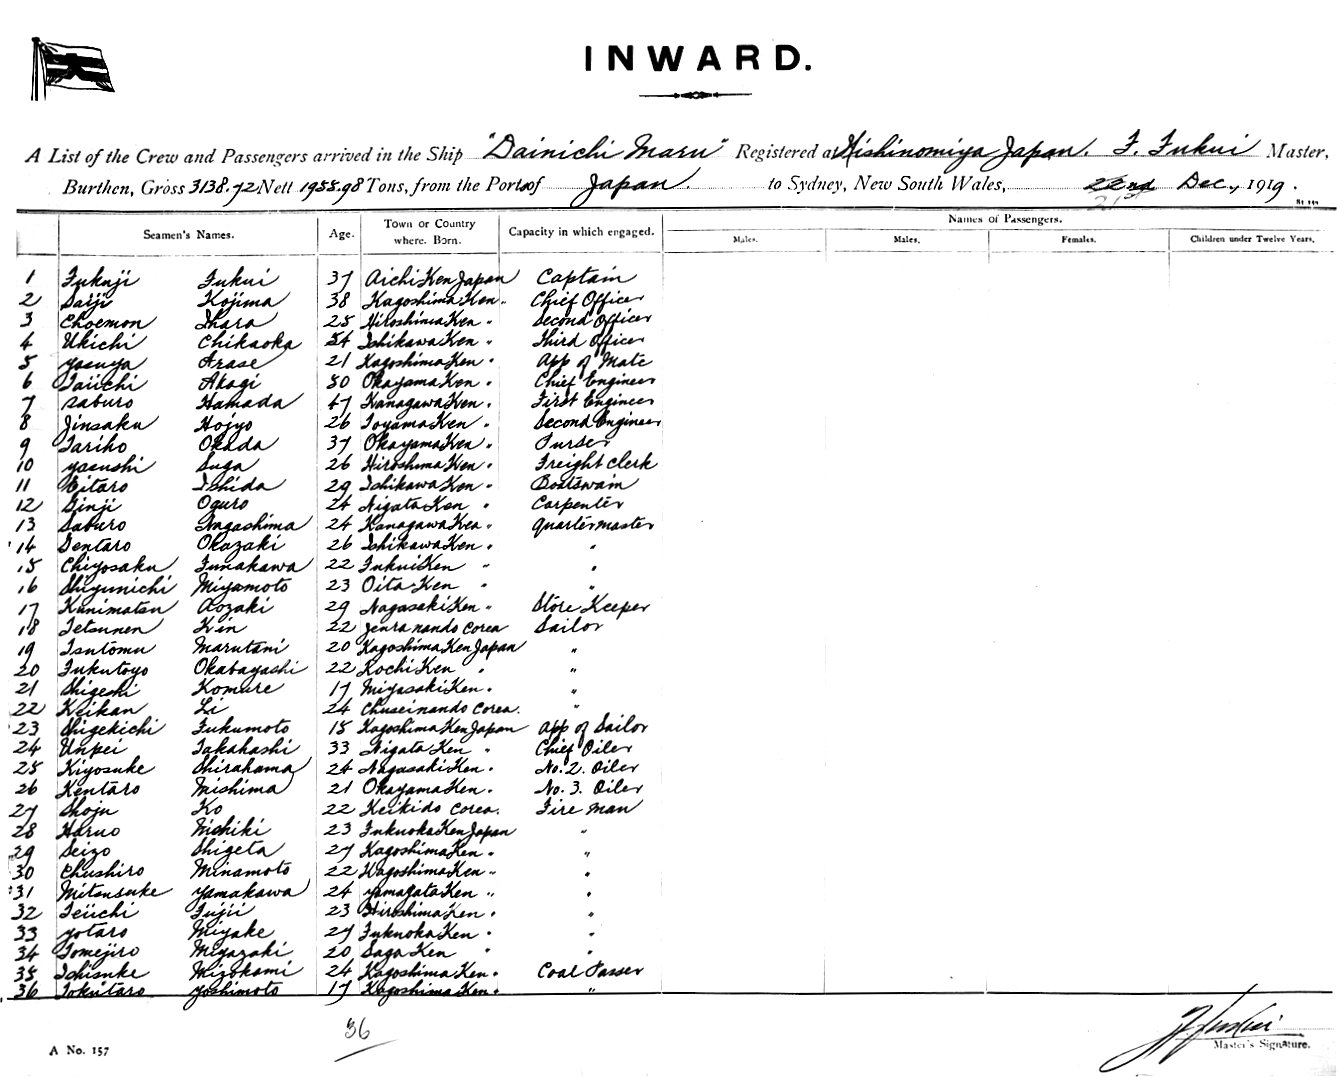 INWARD.
A List of the Crew and Passengers arrived in the Ship "Dainichi Maru" Registered at Nishinomiya Japan. F. Fukui Master,
Burthen, Gross 3138.72 Nett 1955.98 Tons, from the Port of Japan. to Sydney, New South Wales, 22nd Dec., 1919.
21st
Seamen's Names. Age. Town or Country where. Born. Capacity in which engaged. Names of Passengers.
Males. Males. Females. Children under Twelve Years.
1 Fukuji Fukui 37 Aichi Ken Japan Captain
2 Saiji Kojima 38 Kagoshima Ken " Chief Officer
3 Choemon Ihara 25 Hiroshima Ken " Second Officer
4 Ukichi Chikaoka 54 Ishikawa Ken " Third Officer
5 Yasuya Arase 21 Kagoshima Ken " App of Mate
6 Taiichi Akagi 30 Okayama Ken " Chief Engineer
7 Saburo Hamada 47 Kanagawa Ken " First Engineer
8 Jinsaku Hojyo 26 Toyama Ken " Second Engineer
9 Tariho Okada 37 Okayama Ken " Purser
10 Yasushi Suga 26 Hiroshima Ken " Freight Clerk
11 Eitaro Ishida 29 Ishikawa Ken " Boatswain
12 Ginji Oguro 24 Nigata Ken " Carpenter
13 Saburo Nagashima 24 Kanagawa Ken " Quartermaster
14 Gentaro Okazaki 26 Ishikawa Ken " "
15 Chiyosaku Funakawa 22 Fukui Ken " "
16 Shiyunichi Miyamoto 23 Oita Ken " "
17 Kunimatsu Aozaki 29 Nagasaki Ken " Store Keeper
18 Tetsunen Kin 22 Jenra nando Corea Sailor
19 Tsutomu Marutani 20 Kagoshima Ken Japan "
20 Fukutoyo Okabayashi 22 Kochi Ken " "
21 Shigeshi Komure 17 Miyasaki Ken " "
22 Keikan Li 24 Chuseinando Corea. "
23 Shigekichi Fukumoto 15 Kagoshima Ken Japan App of Sailor
24 Unpei Takahashi 33 Nigata Ken " Chief Oiler
25 Kiyosuke Shirahama 24 Nagasaki Ken " No. 2. Oiler
26 Kentaro Mishima 21 Okayama Ken " No. 3. Oiler
27 Shoju Ko 22 Keikido Corea. Fire man
28 Haruo Nishiki 23 Fukuoka Ken Japan "
29 Seizo Shigeta 27 Kagoshima Ken " "
30 Chushiro Minamoto 22 Kagoshima Ken " "
31 Mitsusuke Yamakawa 24 Yamagata Ken " "
32 Teiichi Fujii 23 Hiroshima Ken " "
33 Yotaro Miyake 27 Fukuoka Ken " "
34 Tomejiro Miyazaki 20 Saga Ken " "
35 Ichisuke Mizokami 24 Kagoshima Ken " Coal Passer
36 Tokutaro Yoshimoto 17 Kagoshima Ken " "
36
F. Fukui
A No. 157 Master's Signature.